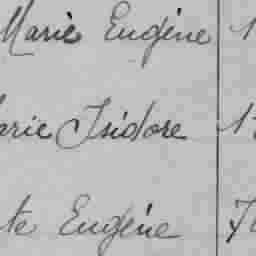 Marie Eugène 1
arie Isidore 1
te Eugène